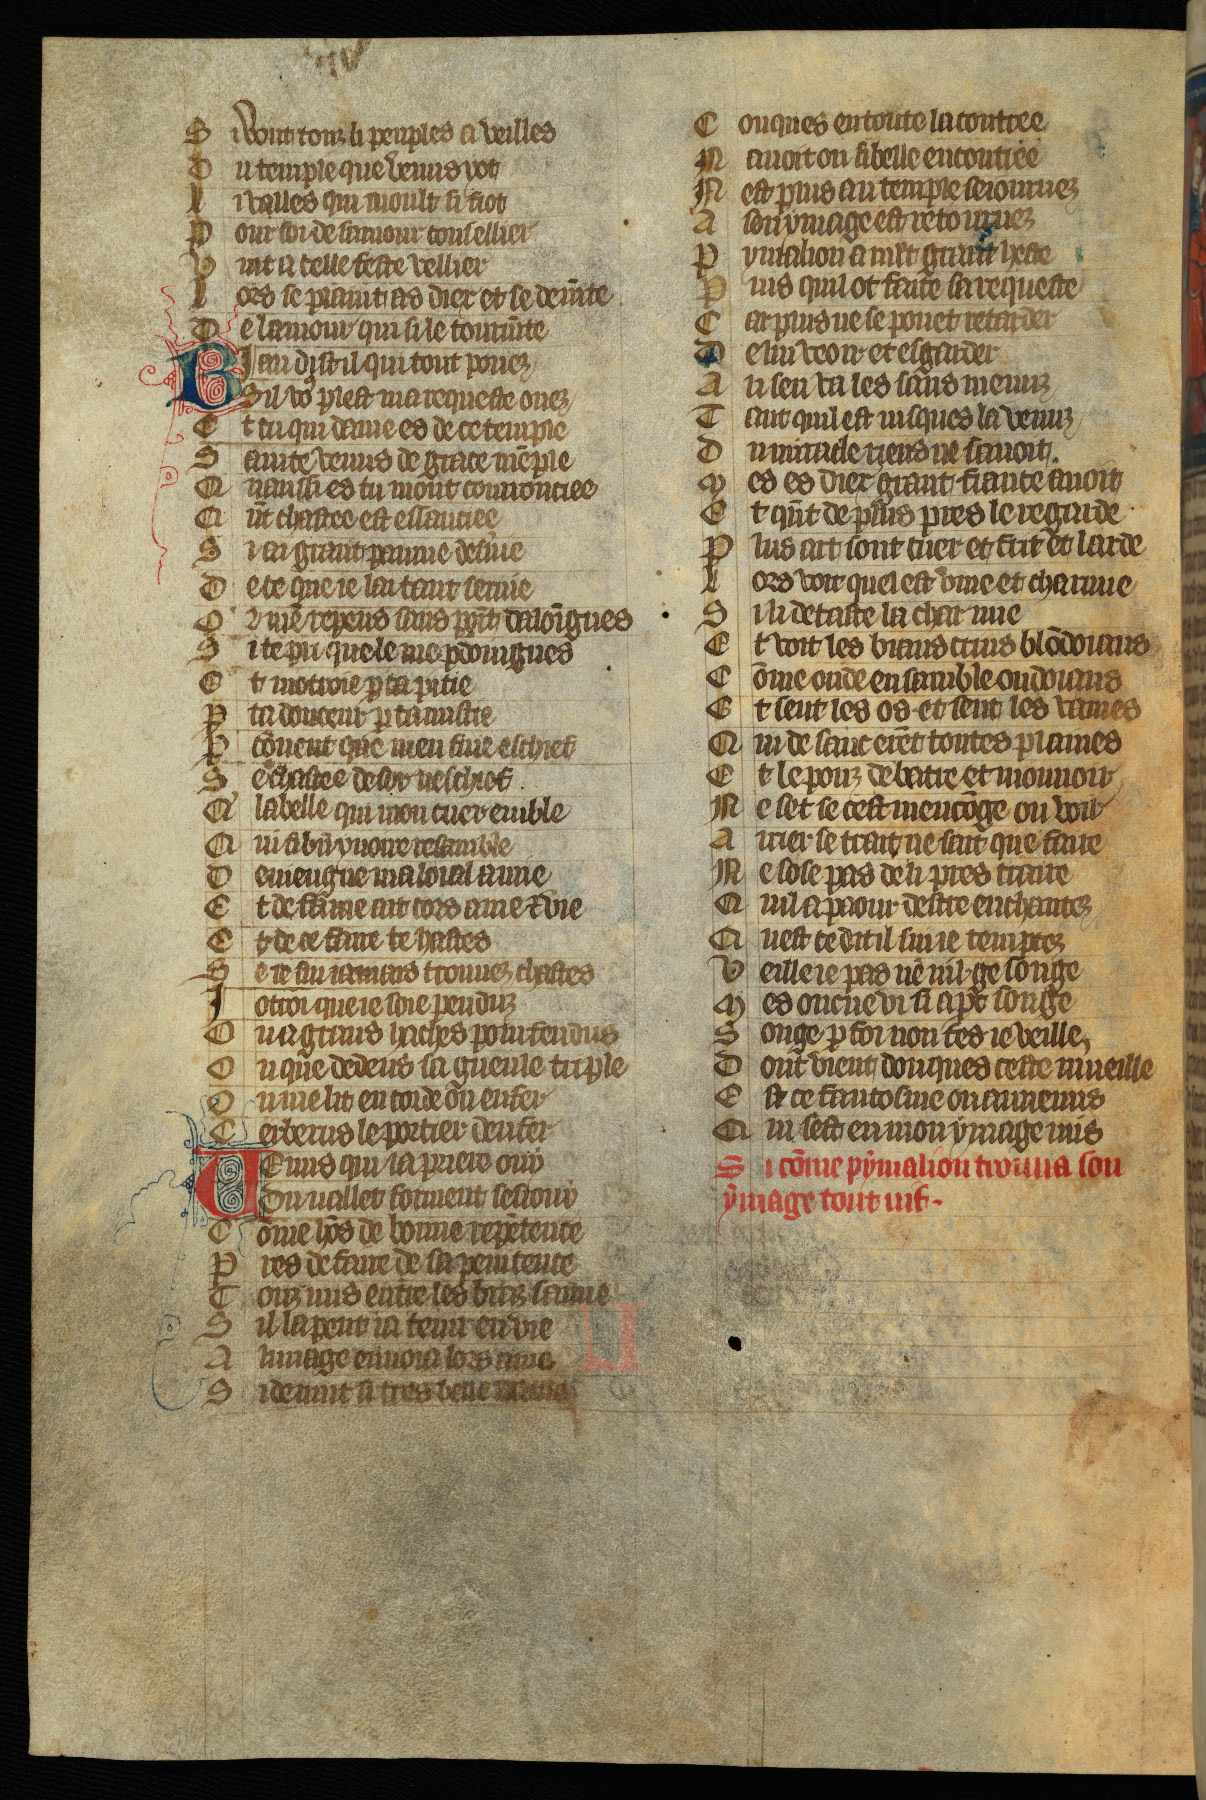 S i vont touz li peuples a veilles
D u temple que venus vot
L i valles qui moult si fiot
P our soi de samour consellier
V int a celle feste vellier
L ors se plaint as diex et se demēte
D e lamour qui si le tourmēte
Biau dist il qui tout pouez
Sil vo9 plest ma requeste ouez
E t tu qui dame es de ce temple
S ainte venus de grace mēple
Q uaussi es tu mont courouciee
Q n̄t chastee est essauciee
S i ai grant painne deseruie
D e ce que ie lai tant seruie
O r mē repens sans poīt daloīgnes
S i te pri que le me pdoingnes
E t motroie p ta pitie
P ta douceur p tamistie
P cōuent que men fuie eschief
S e chastee desor neschief
Q la belle qui mon cuer emble
Q ui si biē yuoire resamble
D euiengne ma loial amie
E t de fāme ait cors ame & vie
E t de ce faire te hastes
S e ie sui iamais trouuez chastes
J otroi que ie soie penduz
O u a grans haches pourfendus
O u que dedens sa gueule triple
O u me lit en corde ou en fer
C erberus le portier denfer
Venus qui la priere ouy
Du vallet forment sesiouy
C ōme lors de bonne repētence
P res de faire de sa penitence
T ouz nus entre les braz samie
S il la peut ia tenir en vie
A lymage enuoia lors ame
S i deuint si tres belle dame
C onques en toute la contree
N auoit on si belle encontree
N est plus au temple seiournez
A son ymage est retournez
P ymalion a mlt grant heste
P uis quil ot faite sa requeste
C ar plus ne se pouet retarder
D e lui veoir et esgarder
A u sen va les saus menuz
T ant quil est iusques la venuz
D u miracle riens ne sauoit
M es es diex grant fiance auoit
E t qn̄t de plus pres le regarde
P lus art sont cuer et frit et larde
L ors voit quel est viue et charnue
S i li detaste la char nue
E t voit les biaus crins blōdoians
C ōme onde ensamble ondoians
E t sent les os et sent les vaines
Q ui de sanc erēt toutes plaines
E t le pouz debatre et mouuoir
N e set se cest mencōge ou voir
A rrier se trait ne sait que faire
N e sose pas de li pres traire
Q uil a paour destre enchantez
Q uest ce dit il sui ie temptez
V eille ie pas nēnil ge songe
M es oncne vi si apt songe
S onge p foi non fes ie veille
D ont vient donques ceste mueille
E st ce fantosme ou anemis
Q ui sest en mon ymage mis
S i cōme pymalion trouua son
ymage tout uif